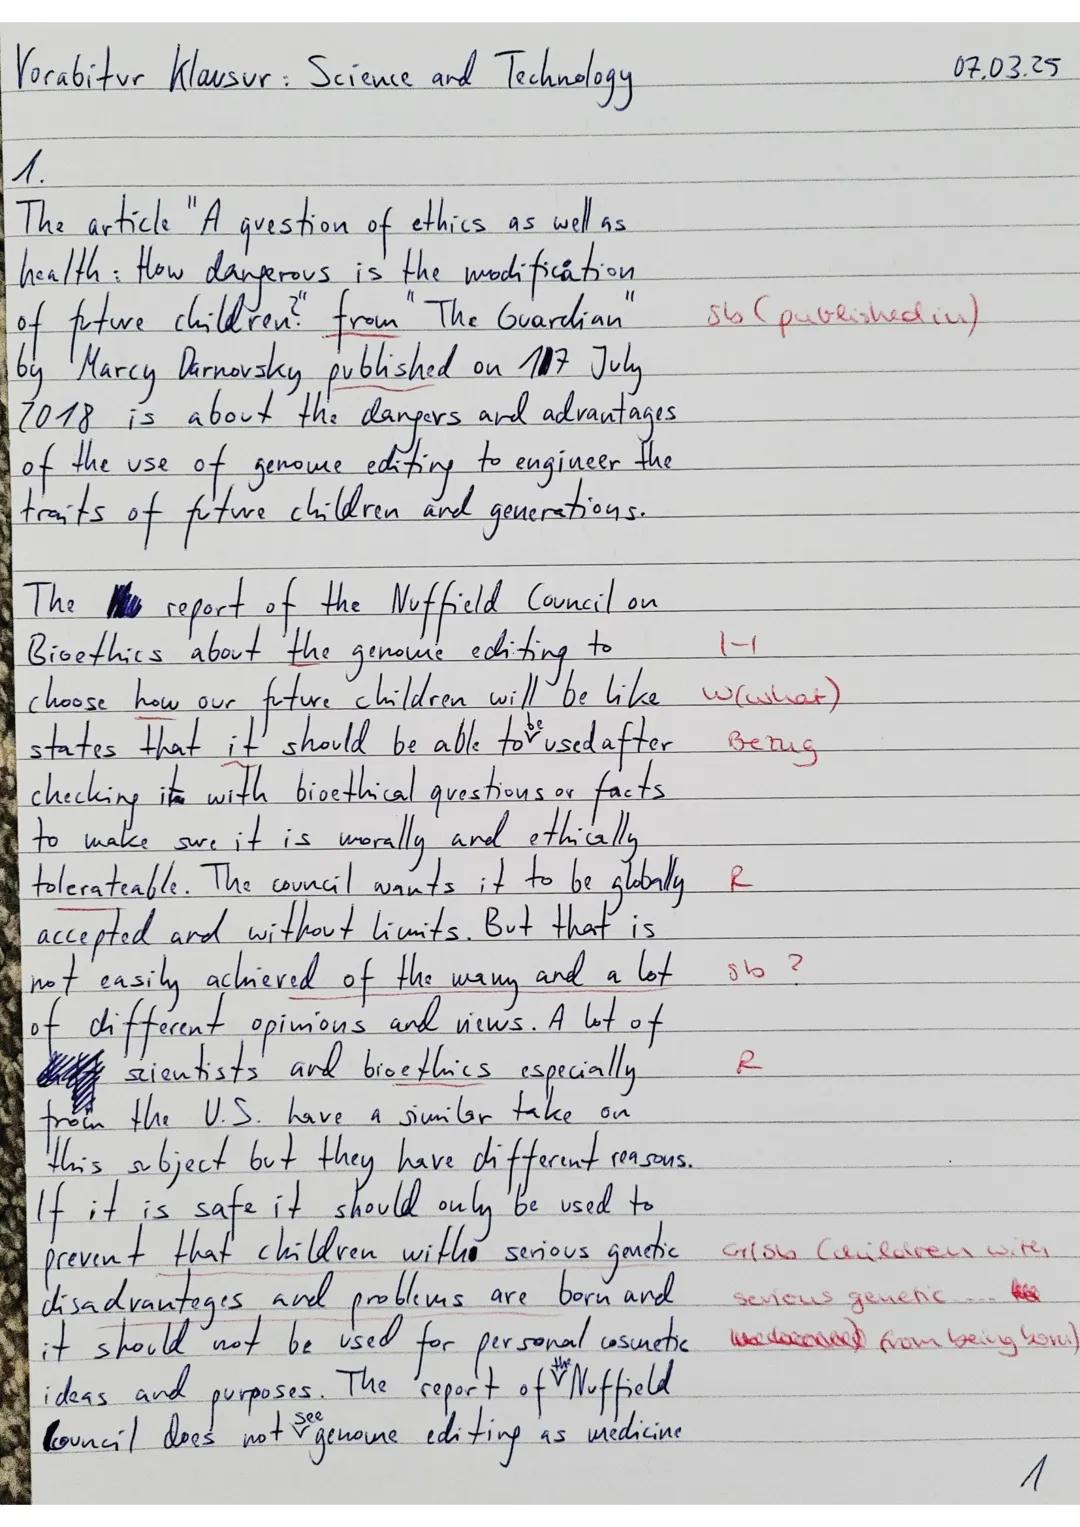 Vorabitur Klausur: Science and Technology 07.03.25
1.
The article "A question of ethics as well as
health: How dangerous is the modification
of future children?" from "The Guardian" sb (published in)
by Marcy Darnovsky published on 17 July
2018 is about the dangers and advantages
of the use of genome editing to engineer the
traits of future children and generations.
The report of the Nuffield Council on
Bioethics about the genome editing to |-|
choose how our future children will be like W(what)
states that it should be able to be used after Bezug
checking it with bioethical questions or facts
to make sure it is morally and ethically
tolerateable. The council wants it to be globally R
accepted and without limits. But that is
not easily achieved of the many and a lot sb ?
of different opinions and views. A lot of
scientists and bioethics especially R
from the U.S. have a similar take on
this subject but they have different reasons.
If it is safe it should only be used to
prevent that children with serious genetic Gr/sb (children with
disadvanteges and problems are born and serious genetic ...
it should not be used for personal cosmetic from being born)
ideas and purposes. The report of the Nuffield
Council does not see genome editing as medicine
1